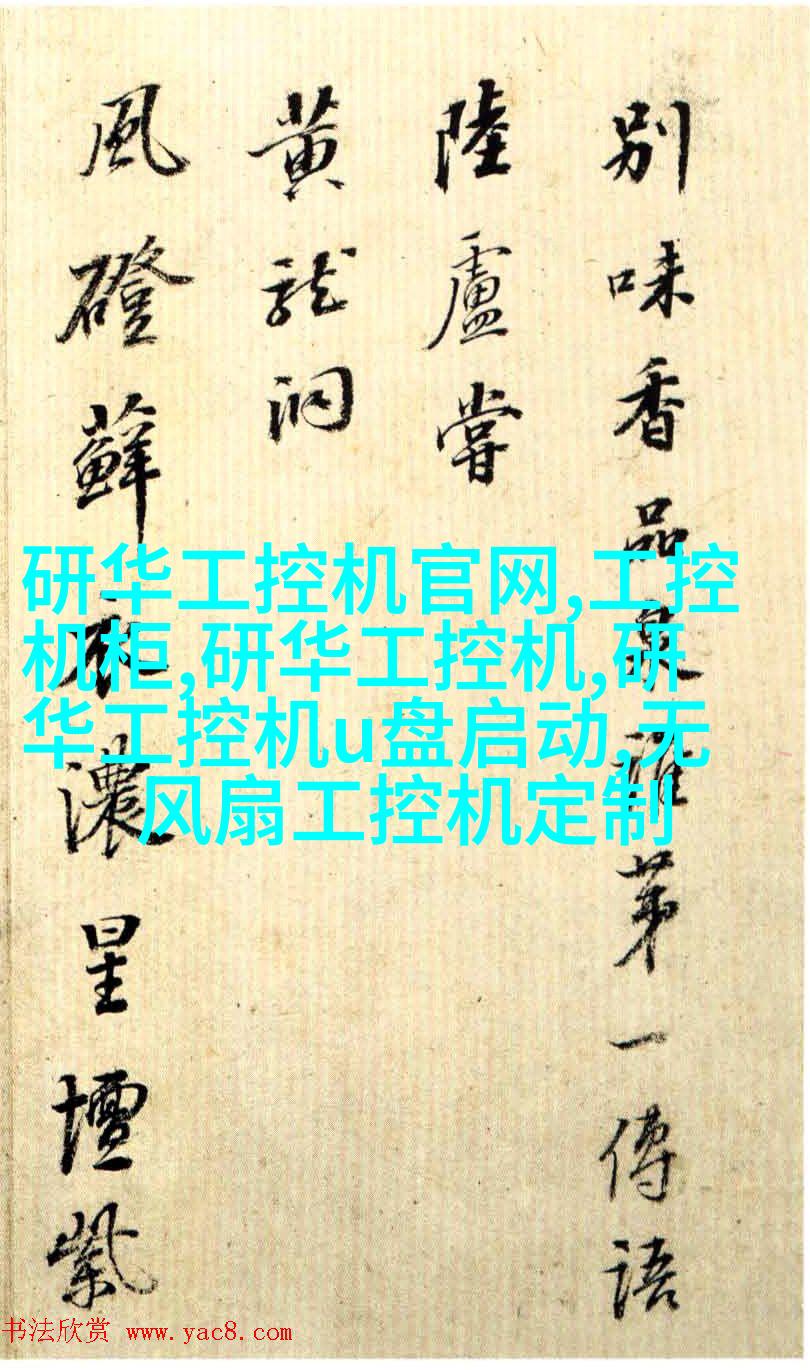 别味香品泉誰第一傳語
陸盧嘗
黄龍洞
風磴蘚衣濃星壇紫
研华工控机官网,工控
机柜,研华工控机,研
华工控机u盘启动,无
风扇工控机定制
书法欣赏 www.yac8.com